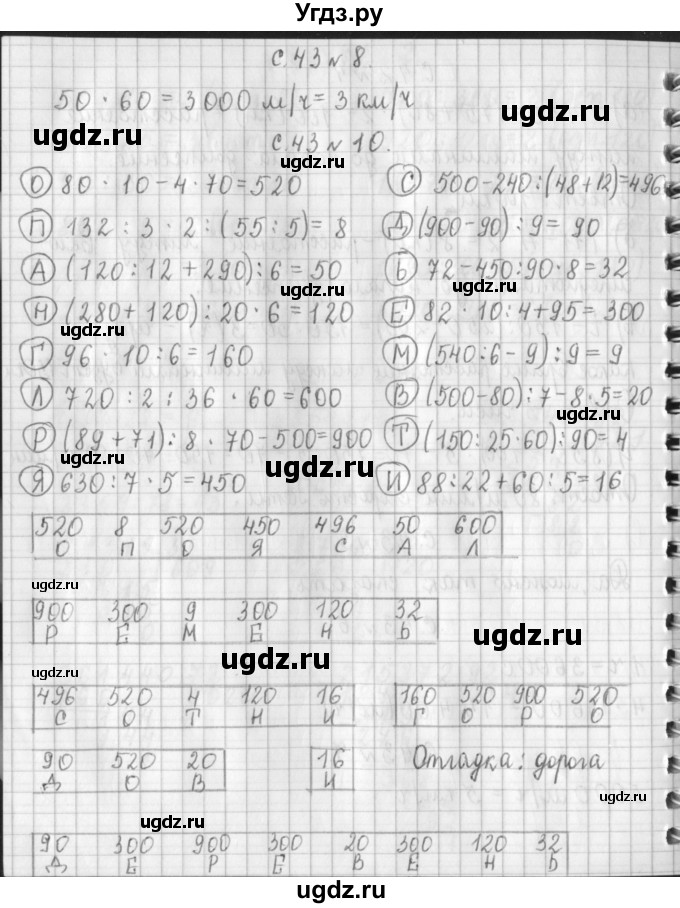 Угдз.ру
С. 43 № 8.
50 · 60 = 3000 м/ч = 3 км/ч
ugdz.ru
ugdz.ru
С. 43 № 10.
ugdz.ru
О 80 · 10 - 4 · 70 = 520
С 500 - 240 : (48 + 12) = 496
П 132 : 3 · 2 : (55 : 5) = 8
Д (900 - 90) : 9 = 90
ugdz.ru
А (120 : 12 + 290) : 6 = 50
Б 72 - 450 : 90 · 8 = 32
ugdz.ru
ugdz.ru
Н (280 + 120) : 20 · 6 = 120
Е 82 · 10 : 4 + 95 = 300
ugdz.ru
Г 96 · 10 : 6 = 160
М (540 : 6 - 9) : 9 = 9
ugdz.ru
Л 720 : 2 : 36 · 60 = 600
В (500 - 80) : 7 - 8 · 5 = 20
ugdz.ru
Р (89 + 71) : 8 · 70 - 500 = 900
Т (150 : 25 · 60) : 90 = 4
ugdz.ru
ugdz.ru
Я 630 : 7 · 5 = 450
И 88 : 22 + 60 : 5 = 16
520 8 520 450 496 50 600
О П О Я С А Л
ugdz.ru
900 300 9 300 120 32
Р Е М Е Н Ь
ugdz.ru
ugdz.ru
ugdz.ru
496 520 4 120 16
С О Т Н И
160 520 900 520
Г О Р О
ugdz.ru
90 520 20
Д О В
16
И
Отгадка: дорога
ugdz.ru
ugdz.ru
90 300 900 300 20 300 120 32
Д Е Р Е В Е Н Ь
ugdz.ru